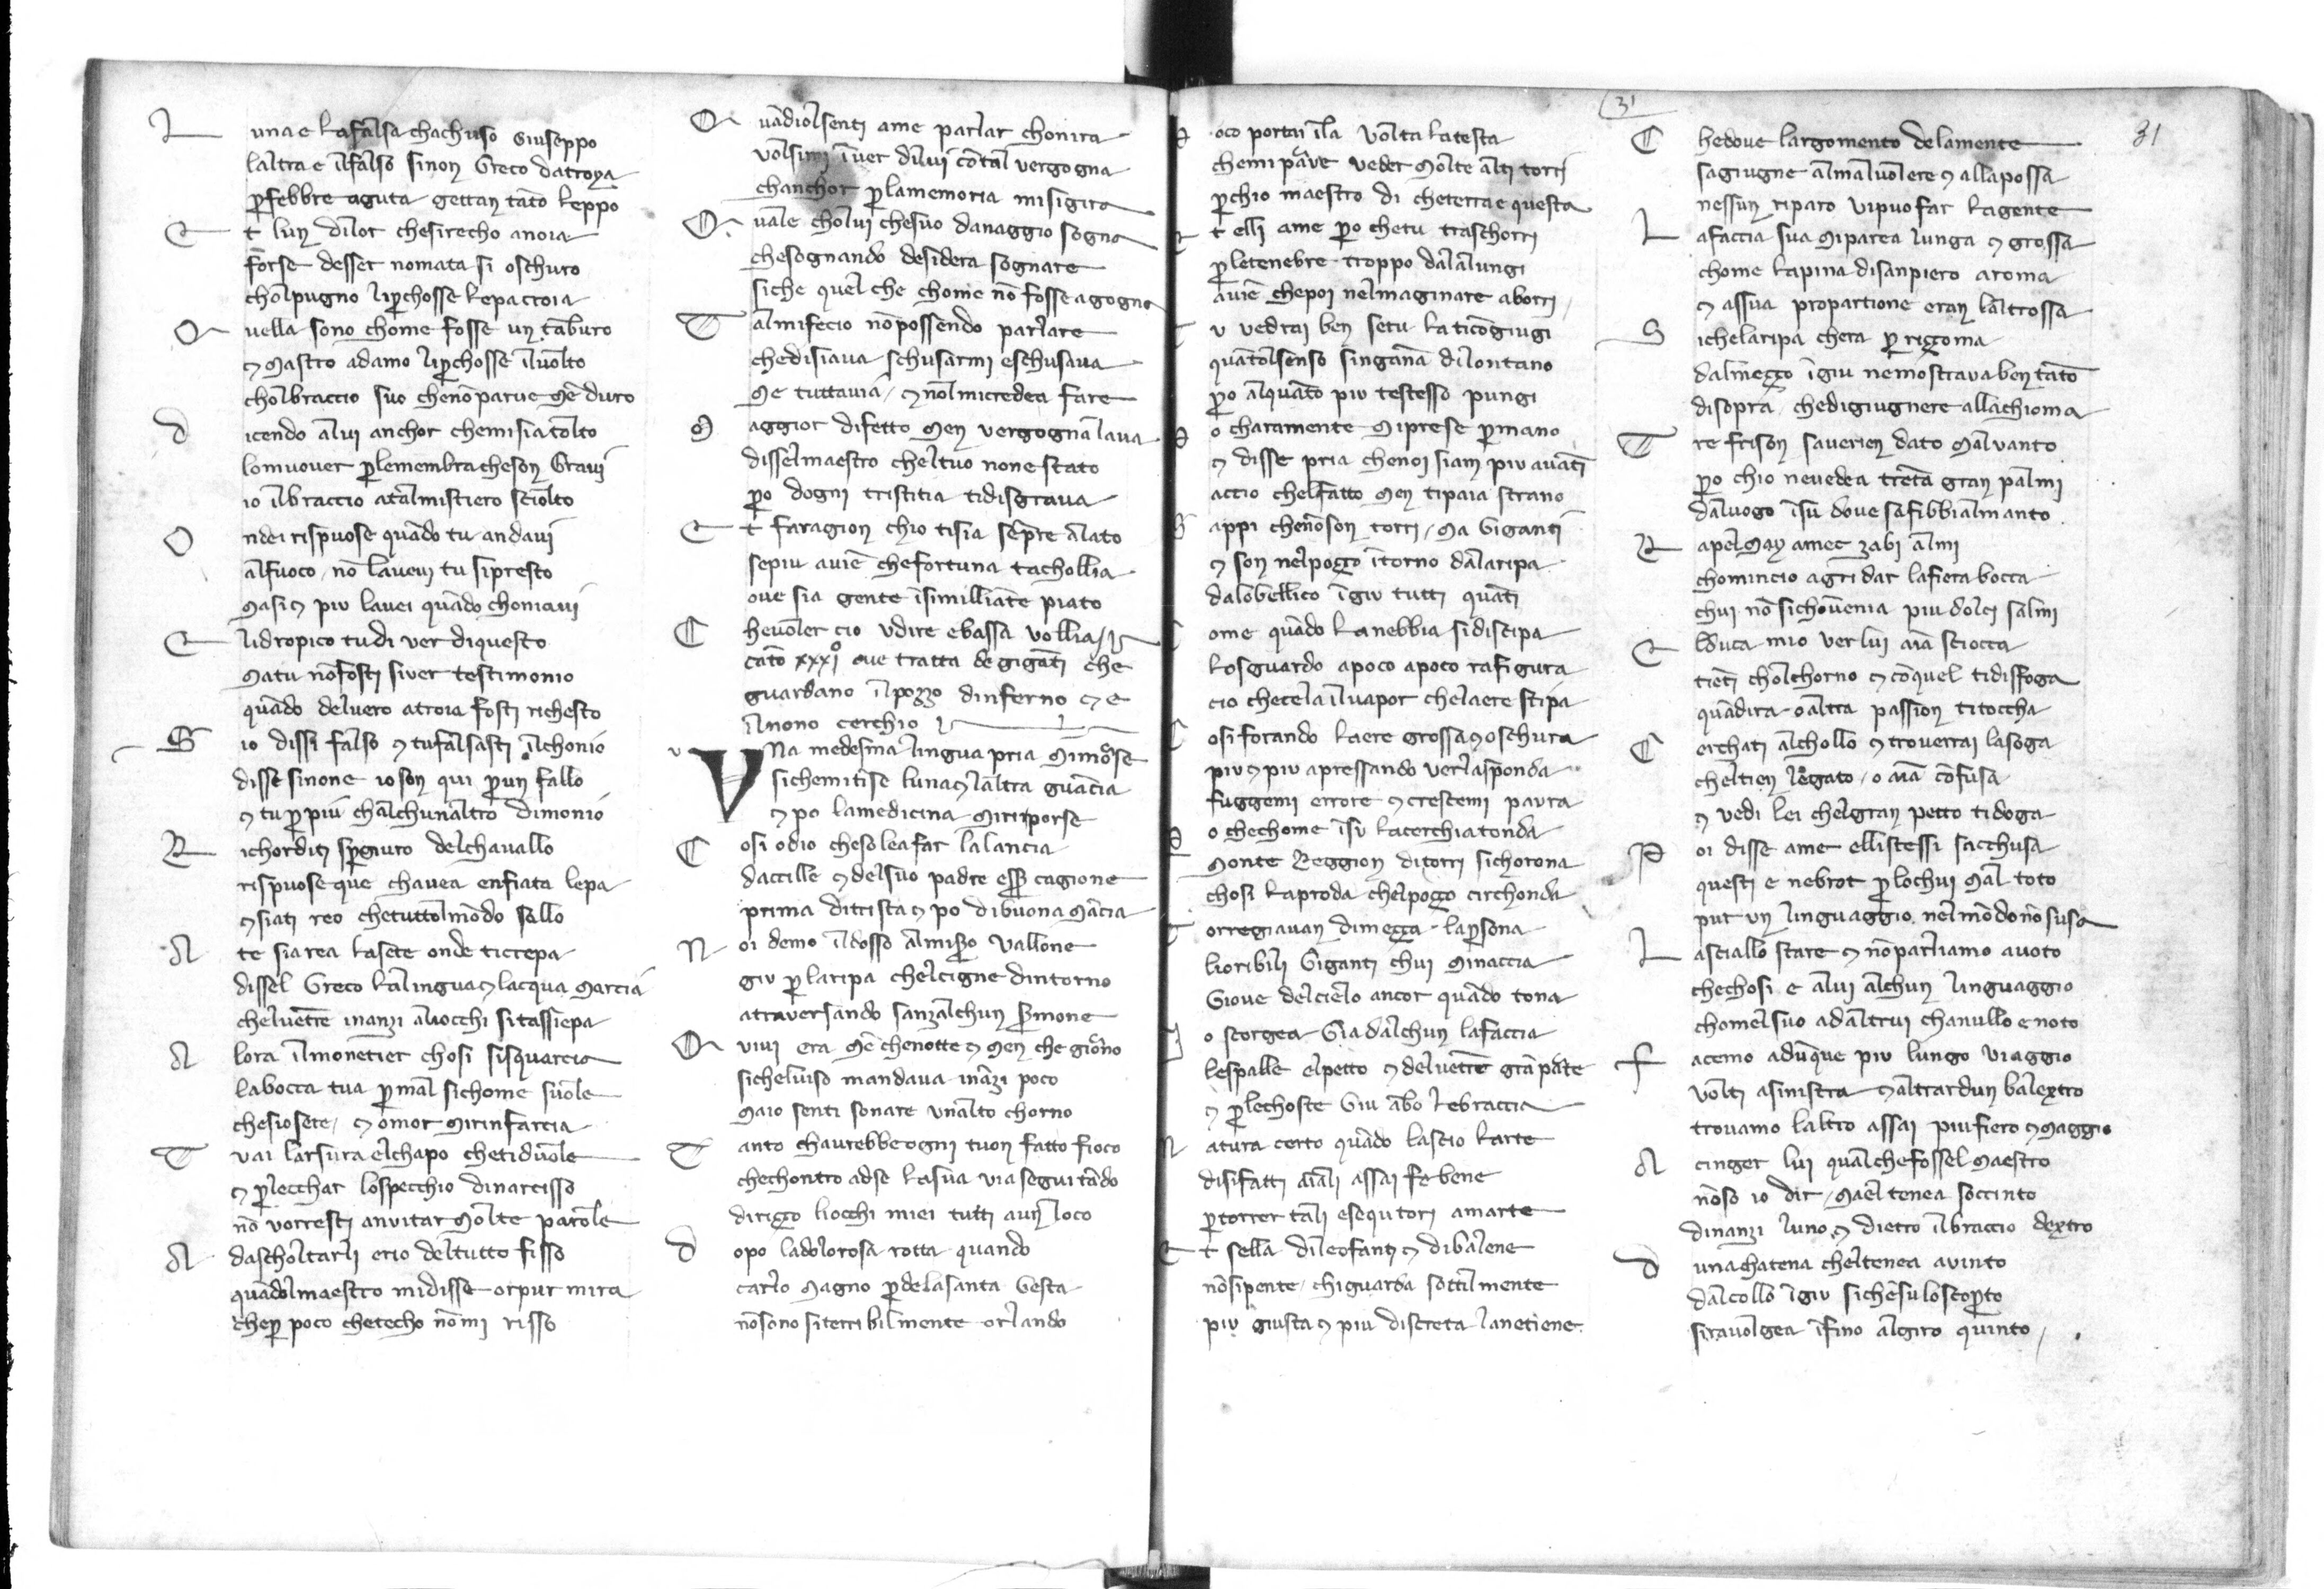 L una e la falsa chachuso Giuseppo
laltra e ilfalso sinon Greco datroya
ꝑfebbre aguta gettan tāto leppo
E t lun dilor chesirecho anoia
forse desser nomata si oschuro
cholpugno liꝑchosse lepaccoia
Q uella sono chome fosse un tāburo
⁊ Mastro adamo liꝑchosse iluolto
cholbraccio suo chenōparue mē duro
d icendo alui anchor chemisia tolto
lomuouer ꝑlemembra cheson Graui
io ilbraccio atalmistiero sciolto
O ndei rispuose quādo tu andaui
alfuoco, nō laueui tu sipresto
Masi ⁊ piu lauei quādo choniaui
E lidropico tu di ver diquesto
Matu nōfosti siver testimonio
quādo deluero atroia fosti richesto
S io dissi falso ⁊ tufalsasti ilchonio
disse sinone ioson qui ꝑun fallo
⁊ tu ꝑ piu chalchunaltro dimonio
R ichorditi sꝑgiuro delchauallo
rispuose que chauea enfiata lepa
⁊siati reo chetuttolmōdo sallo
A te siarea lasete onde ticrepa
dissel Greco lalingua⁊lacqua marcia
cheluētre inanzi aliocchi sitassiepa
A lora ilmonetier chosi sisquarcia
labocca tua ꝑ mal sichome suole
chesiosete, ⁊ omor mirinfarcia
T uai larsura elchapo chetiduole
⁊ ꝑlecchar lospecchio dinarcisso
nō vorresti anvitar molte parole
A dascholtarli erio deltutto fisso
quādolmaestro midisse orpur mira
cheꝑ poco chetecho nōmi risso
Q uādiolsenti ame parlar chonira
volsimi inver dilui cōtal vergogna
chanchor ꝑlamemoria misigira
Q uale cholui chesuo danaggio sogna
chesognando desidera sognare
siche quel che chome nō fosse agogna
T almifecio nōpossendo parlare
chedisiaua schusarmi eschusaua
Me tuttauia, ⁊ nōlmicredea fare
M aggior difetto men vergogna laua
disselmaestro cheltuo none stato
ꝑo dogni tristitia tidisgraua
E t faragion chio tisia sēpre alato
sepiu auiē chefortuna tachollia
oue sia gente isimilliāte piato
C heuoler cio vdire ebassa vollia
cāto xxxio oue tratta de gigāti che
guardano ilpozzo dinferno ⁊ e
ilnono cerchio
V Na medesma lingua pria mimorse
sichemitise luna⁊laltra guācia
⁊ po lamedicina miriporse
C osi odio chesoleafar lalancia
daccille ⁊ delsuo padre esser cagione
prima ditrista⁊ po dibuona mācia
N oi demo ildosso almisero uallone
giu ꝑ laripa chelcigne dintorno
atraversando sanzalchun sermone
Q uiui era mē chenotte⁊ men che giorno
sichelviso mandauaināzi poco
Maio senti sonare vnalto chorno
T anto chaurebbe ogni tuon fatto fioco
chechontro adse lasua via seguitādo
dirizzo liocchi miei tutti aun loco
d opo ladolorosa rotta quando
carlo magno ꝑdelasanta Gesta
nōsono siterribilmente orlando
P oco portai ila volta latesta
chemi parve veder molte alti torri
ꝑchio maestro di cheterrae questa
E t elli ame ꝑo chetu traschorri
ꝑletenebre troppo dalalungi
auiē chepoi nelmaginare aborri
T u vedrai ben setu laticōgiugi
quātolsenso singana dilontano
ꝑo alquāto piu testesso pungi
P o charamente miprese ꝑmano
⁊ disse pria chenoi siam piu auāti
accio chelfatto men tipaia strano
S appi chenōson torri, Ma Giganti
⁊ son nelpozzo itorno dalaripa
dalobellico igiu tutti quāti
C ome quādo lanebbia sidiscipa
losguardo apoco apoco rafigura
cio checela iluapor chelaere stipa
C osi forando laere grossa⁊oschura
piu⁊piu apressando verlasponda
fuggemi errore ⁊crescemi paura
P o chechome isu lacerchiatonda
Monte Reggion ditorri sichorona
chosi laproda chelpozo circhonda
T orregiauan dimezza laꝑsona
lioribili Giganti chui minaccia
Gioue delcielo ancor quādo tona
I o scorgea Gia dalchun lafaccia
lespalle elpetto ⁊ deluētre grā parte
⁊ ꝑlechoste Giu ābo lebraccia
N atura certo quādo lascio larte
disifatti aīali assai febene
ꝑtorrer tali esequtori amarte
E t sella dileofanti⁊ dibalene
nōsipente, chiguarda sottilmente
piu giusta⁊ piu discreta lanetiene
31
31
C hedoue largomento delamente
sagiugne almaluolere ⁊ allapossa
nessun riparo vipuofar lagente
L afaccia sua miparea lunga ⁊ grossa
chome lapina disanpiero aroma
⁊ assua propartione eran laltrossa
S ichelaripa chera ꝑ rizoma
dalmezzo igiu nemostraua ben tāto
disopra, chedigiugnere allachioma
T re frison saverien dato malvanto
ꝑo chio neuedea trēta gran palmi
daluogo isu dove safibbialmanto
R apelmay amec zabi almi
chomincio agridar lafiera bocca
chui nō sichōvenia piu dolci salmi
E lduca mio ver lui aīa sciocca
tieti cholchorno ⁊ cōquel tidisfoga
quādira oaltra passion titoccha
C erchati alchollo ⁊ troverrai lasoga
cheltien legato, o aīa cōfusa
⁊ vedi lei chelgran petto tidoga
P oi disse ame ellistessi sacchusa
questi e nebrot ꝑ lochui mal toto
pur vn linguaggio nelmōdo nōsusa
L asciallo stare ⁊ nōparliamo auoto
chechosi e alui alchun linguaggio
chomelsuo adaltrui chanullo e noto
f acemo adūque piu lungo viaggio
volti asinistra ⁊altrardun balextro
trouamo laltro assai piufiero⁊maggio
A cinger lui qualchefossel maestro
nōso io dir, Maeltenea soccinto
dinanzi luno, ⁊ dietro ilbraccio dextro
D unachatena cheltenea auinto
dalcollo igiu sichēsuloscoꝑto
sirauolgea ifino algiro quinto